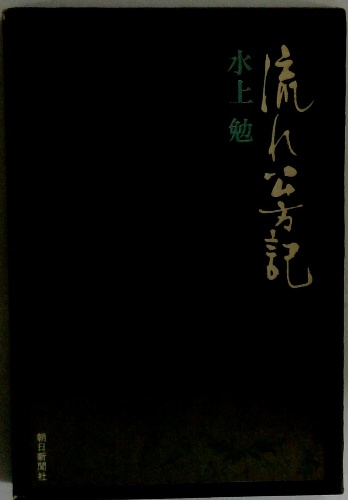 流れ公方記
水上 勉
朝日新聞社